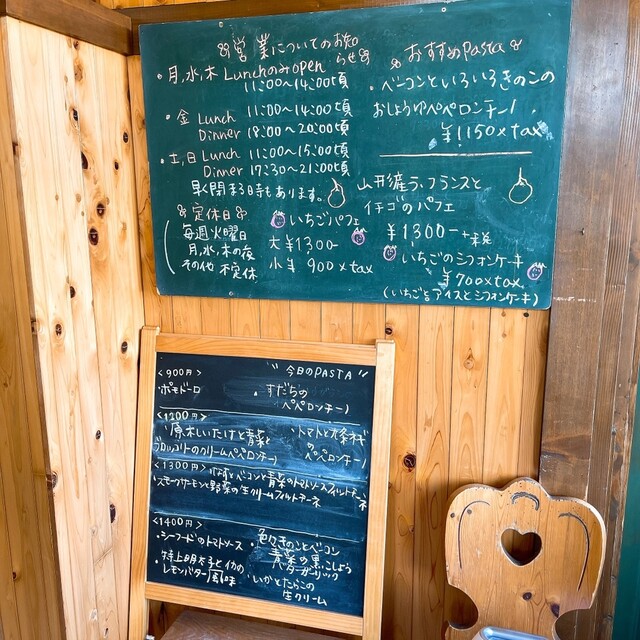 営業についてのお知らせ
・月,水,木 Lunchのみopen
11:00〜14:00頃
・金 Lunch 11:00〜14:00頃
Dinner 18:00〜20:00頃
・土,日 Lunch 11:00〜15:00頃
Dinner 17:30〜21:00頃
早く閉まる日時もあります。
定休日
毎週火曜日
月,水,木の夜
その他 不定休
いちごパフェ
大 ¥1300-
小 ¥ 900×tax
おすすめPasta
・ベーコンといろいろきのこの
おしょうゆペペロンチーノ
¥1150×tax
ラ・フランスと
イチゴのパフェ
¥1300-+税
いちごのシフォンケーキ
¥700×tax
(いちごとアイスとシフォンケーキ)
今日のPASTA
<900円>
・ポモドーロ
・すだちの
ペペロンチーノ
<1200円>
・原木しいたけと青菜と
ブロッコリーのクリームペペロンチーノ
・トマトと
の
ペペロンチーノ
<1300円>
・なすとベーコンと青菜のトマトソース
・スモークサーモンと野菜の生クリーム
<1400円>
・シーフードのトマトソース
・特上明太子とイカの
レモンバター風味
・色々きのことベーコン
青菜の黒こしょう
ガーリック
・いかとたらこの
生クリーム